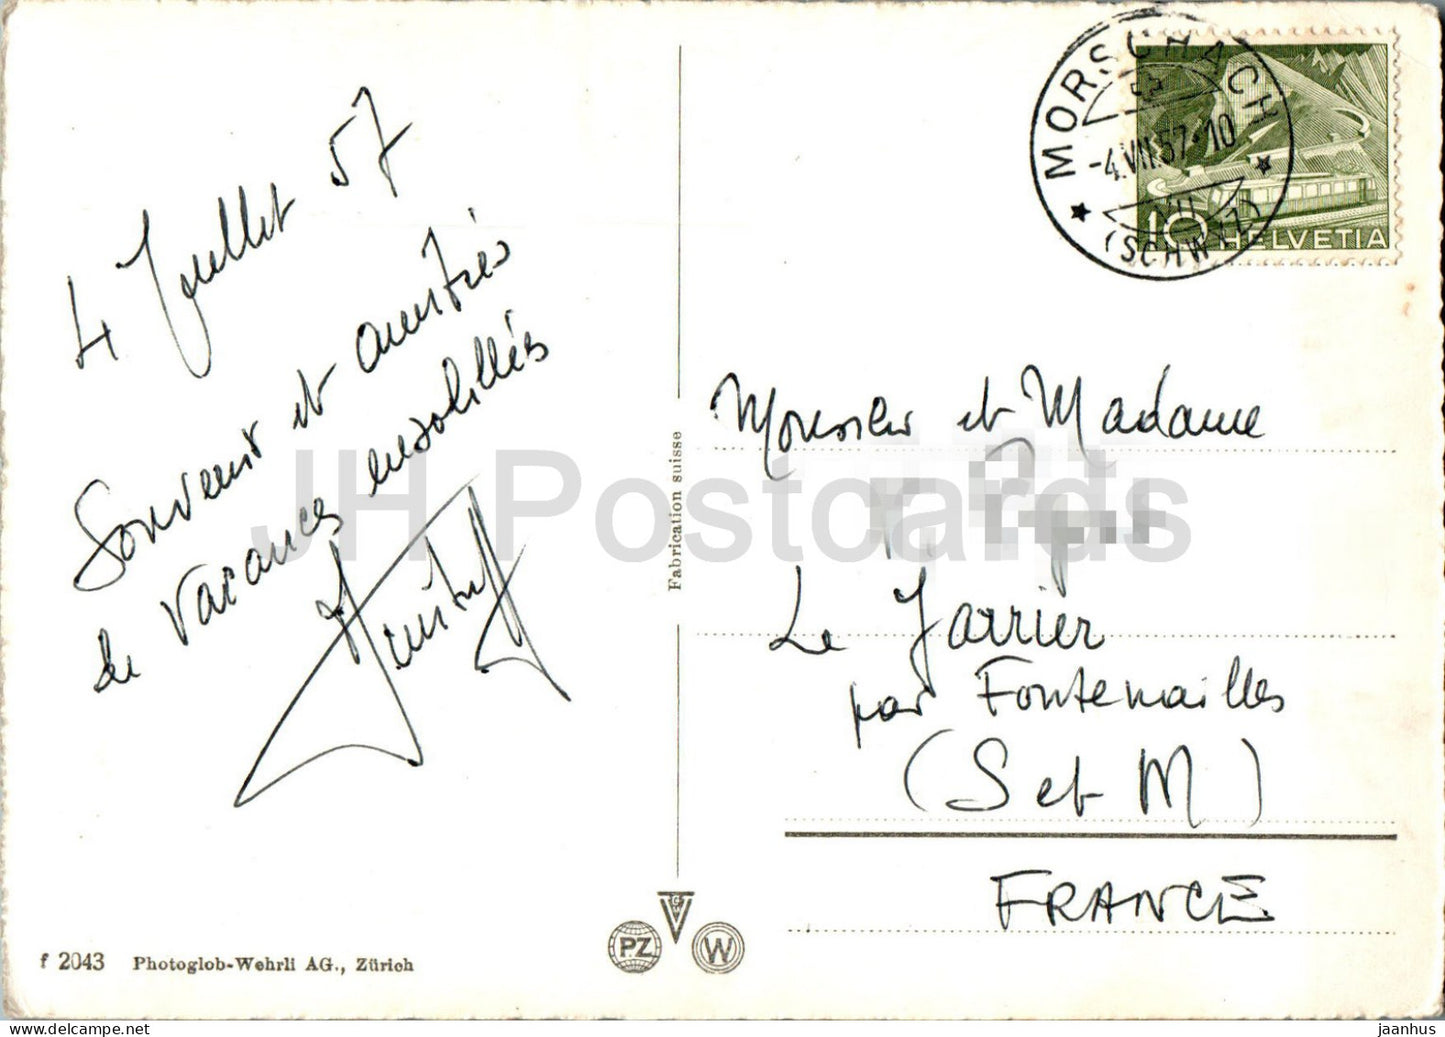 4 Juillet 57
Souvenir et amitiés
de vacances ensoleillés
MORSCHACH
-4.VII.57-10
(SCHWYZ)
10 HELVETIA
Monsieur et Madame
Le Jarrier
par Fontenailles
(S et M)
FRANCE
Fabrication suisse
JH Postcards
PZ
W
f 2043 Photoglob-Wehrli AG., Zürich
jaanhus | www.delcampe.net